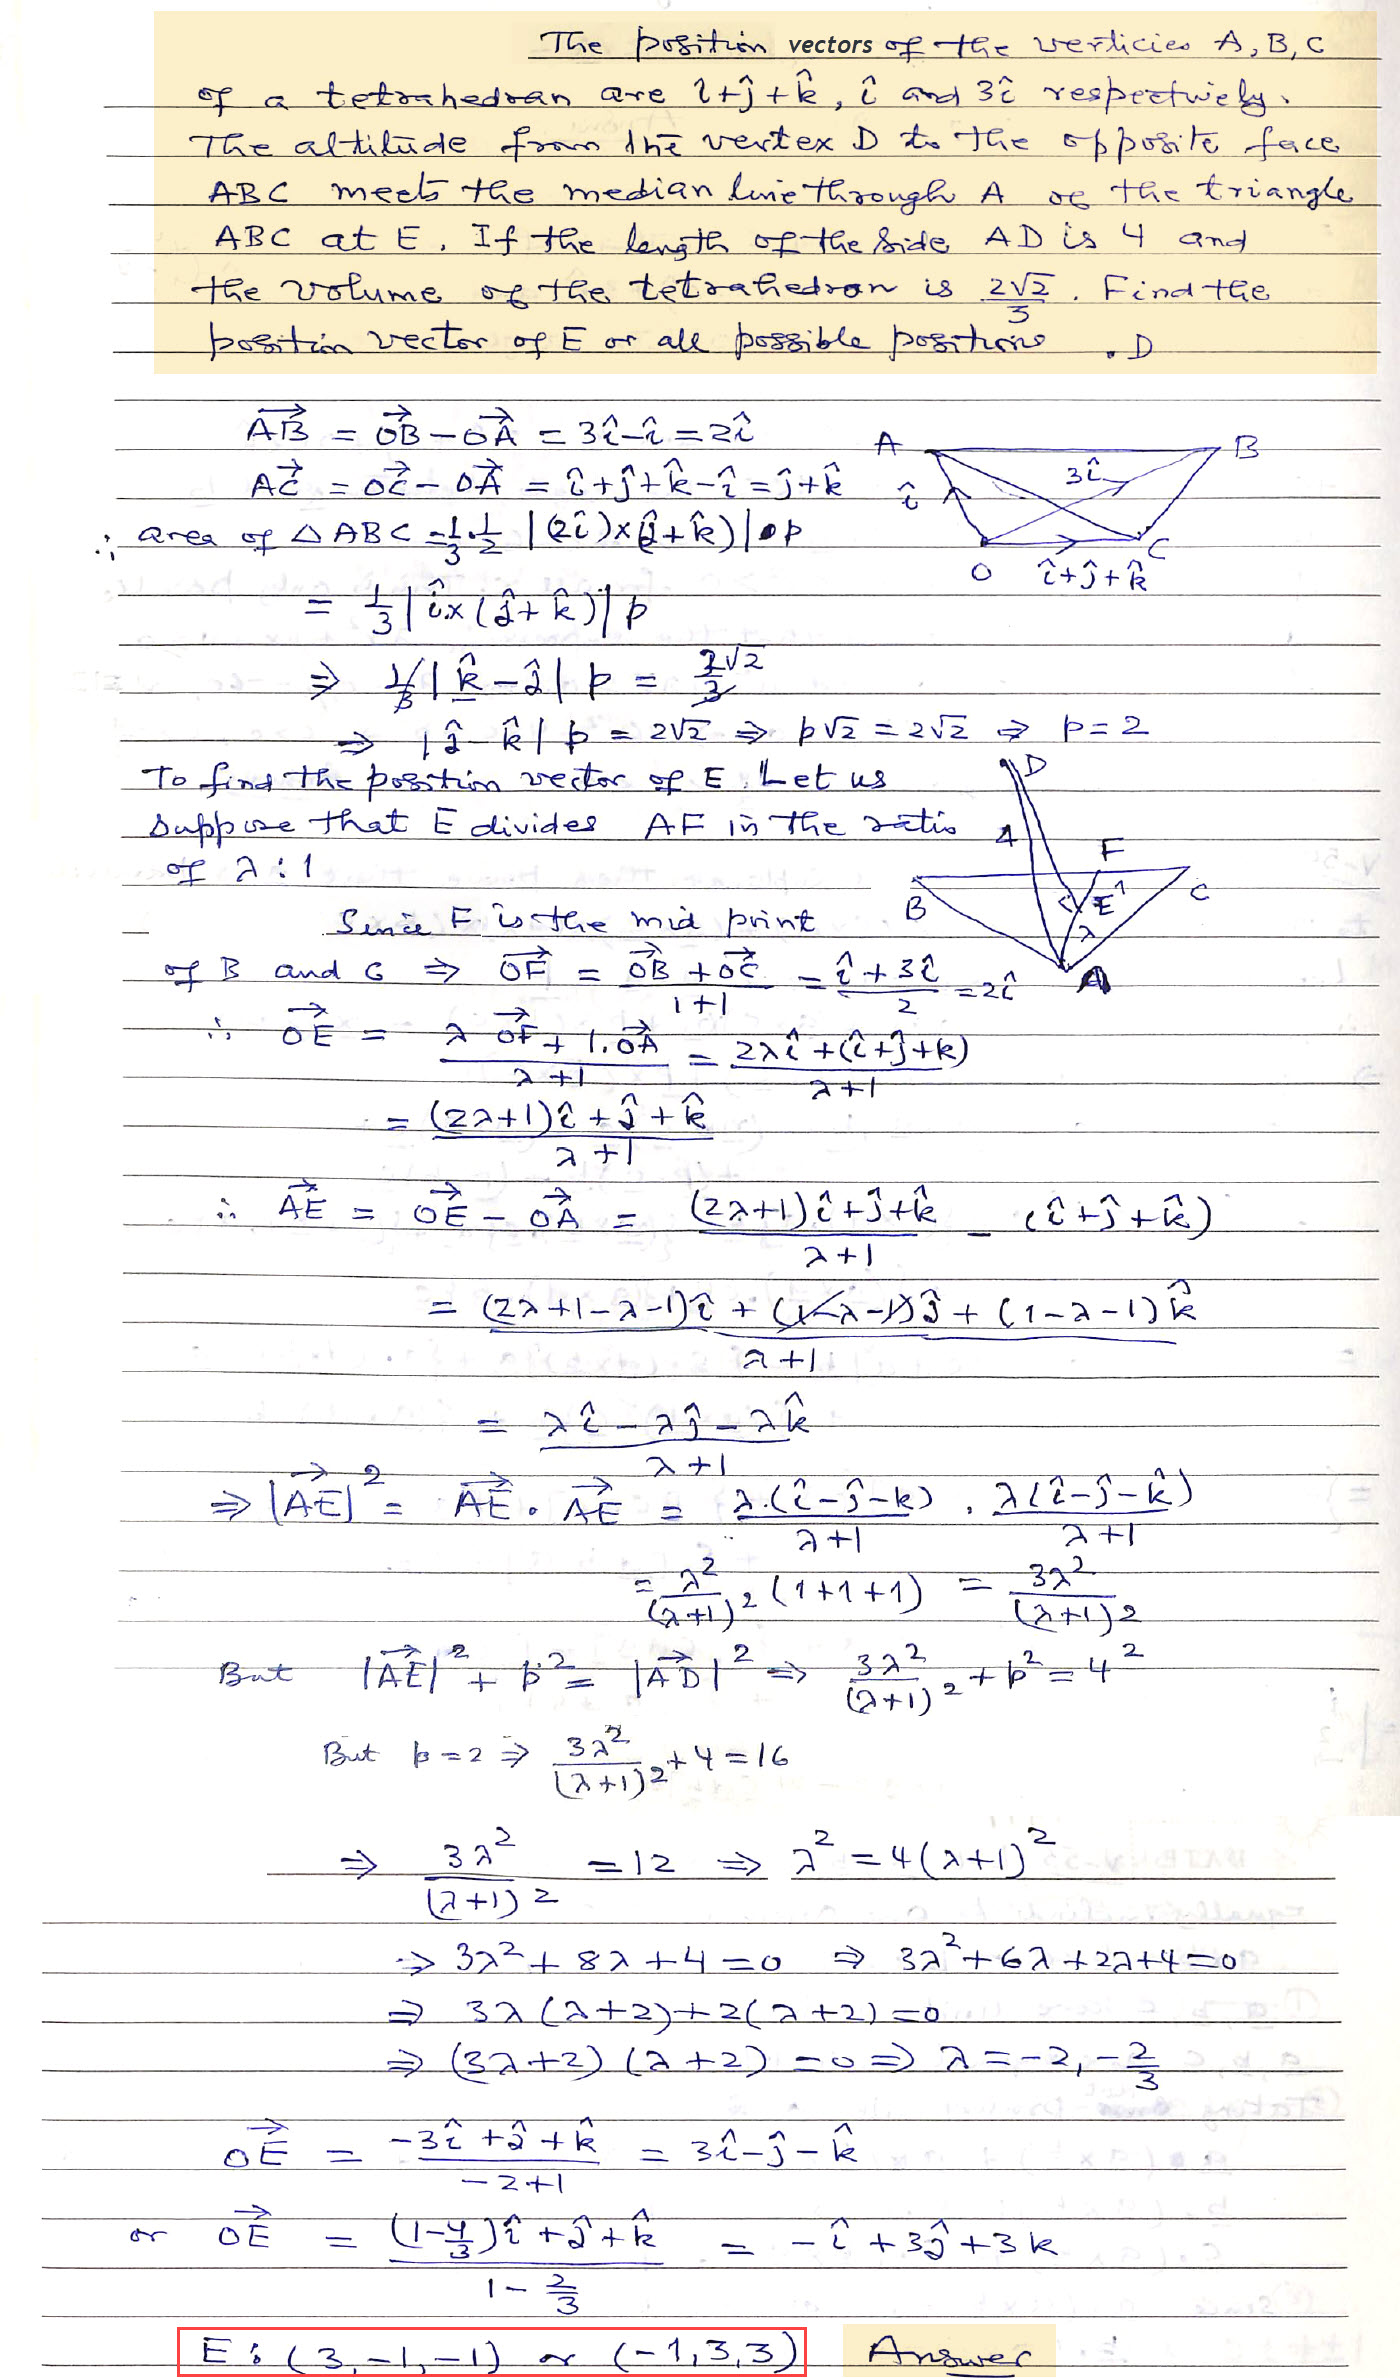 The position vectors of the verticies A, B, C
of a tetrahedran are î+ĵ+k̂, î and 3î respectively.
The altitude from the vertex D to the opposite face
ABC meets the median line through A of the triangle
ABC at E. If the length of the side AD is 4 and
the volume of the tetrahedron is 2√2/3. Find the
position vector of E or all possible positions
.D
AB→ = OB→ - OA→ = 3î-î = 2î
AC→ = OC→ - OA→ = î+ĵ+k̂-î = ĵ+k̂
∴ area of △ABC = 1/3·1/2 |(2î)×(ĵ+k̂)|•p
A B
3î
î
O C
î+ĵ+k̂
= 1/3 |î×(ĵ+k̂)| p
⇒ 1/3 |k̂-ĵ| p = 2√2/3
⇒ |ĵ-k̂| p = 2√2 ⇒ p√2 = 2√2 ⇒ p=2
To find the position vector of E. Let us
suppose that E divides AF in the ratio
of λ:1
D
4 F
B C
E 1
λ
A
Since F is the mid print
of B and C ⇒ OF→ = (OB→ + OC→)/(1+1) = (î+3î)/2 = 2î
∴ OE→ = (λ OF→ + 1.OA→)/(λ+1) = (2λî+(î+ĵ+k))/(λ+1)
= ((2λ+1)î+ĵ+k̂)/(λ+1)
∴ AE→ = OE→ - OA→ = ((2λ+1)î+ĵ+k̂)/(λ+1) - (î+ĵ+k̂)
= ((2λ+1-λ-1)î + (1-λ-1)ĵ + (1-λ-1)k̂)/(λ+1)
= (λî-λĵ-λk̂)/(λ+1)
⇒ |AE→|² = AE→ . AE→ = λ.(î-ĵ-k)/(λ+1) . λ(î-ĵ-k̂)/(λ+1)
= λ²/(λ+1)² (1+1+1) = 3λ²/(λ+1)²
But |AE→|² + p² = |AD→|² ⇒ 3λ²/(λ+1)² + p² = 4²
But p=2 ⇒ 3λ²/(λ+1)² + 4 = 16
⇒ 3λ²/(λ+1)² = 12 ⇒ λ² = 4(λ+1)²
⇒ 3λ²+8λ+4=0 ⇒ 3λ²+6λ+2λ+4=0
⇒ 3λ(λ+2)+2(λ+2)=0
⇒ (3λ+2)(λ+2)=0 ⇒ λ=-2, -2/3
OE→ = (-3î+ĵ+k̂)/(-2+1) = 3î-ĵ-k̂
or OE→ = ((1-4/3)î+ĵ+k̂)/(1-2/3) = -î+3ĵ+3k
E: (3,-1,-1) or (-1,3,3) Answer